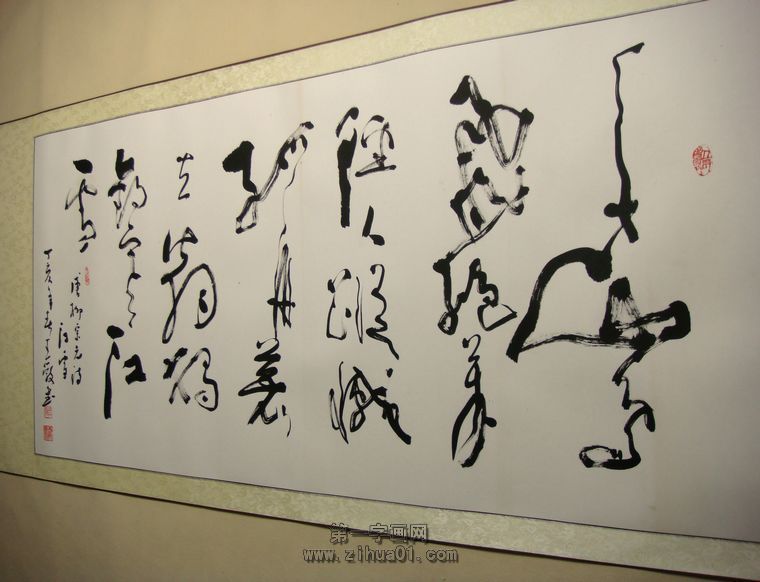 千山鸟
飛絕萬
徑人蹤滅
孤舟蓑
笠翁獨
釣寒江
雪
唐柳宗元詩
江雪
丁亥年春
第一字画网
www.zihua01.com